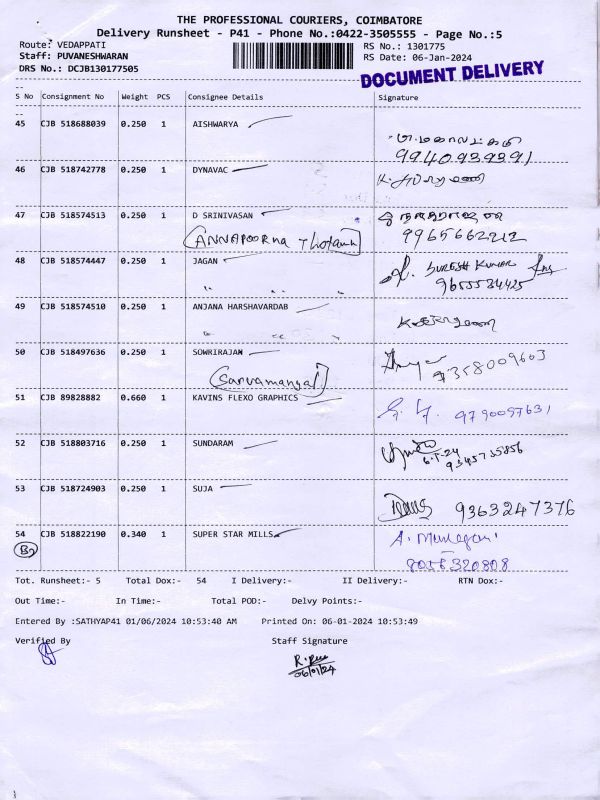 THE PROFESSIONAL COURIERS, COIMBATORE
Delivery Runsheet - P41 - Phone No.:0422-3505555 - Page No.:5
Route: VEDAPPATI RS No.: 1301775
Staff: PUVANESHWARAN RS Date: 06-Jan-2024
DRS No.: DCJB130177505 DOCUMENT DELIVERY
S No Consignment No Weight PCS Consignee Details Signature
45 CJB 518688039 0.250 1 AISHWARYA
9940939391
46 CJB 518742778 0.250 1 DYNAVAC
47 CJB 518574513 0.250 1 D SRINIVASAN
ANNAPOORNA 9965662212
48 CJB 518574447 0.250 1 JAGAN SURESH KUMAR
9655534425
49 CJB 518574510 0.250 1 ANJANA HARSHAVARDAB
50 CJB 518497636 0.250 1 SOWRIRAJAN
9358009603
51 CJB 89828882 0.660 1 KAVINS FLEXO GRAPHICS 9790057631
52 CJB 518803716 0.250 1 SUNDARAM
53 CJB 518724903 0.250 1 SUJA
9363247376
54 CJB 518822190 0.340 1 SUPER STAR MILLS
8056320808
Tot. Runsheet:- 5 Total Dox:- 54 I Delivery:- II Delivery:- RTN Dox:-
Out Time:- In Time:- Total POD:- Delvy Points:-
Entered By :SATHYAP41 01/06/2024 10:53:40 AM Printed On: 06-01-2024 10:53:49
Verified By Staff Signature
06/01/24